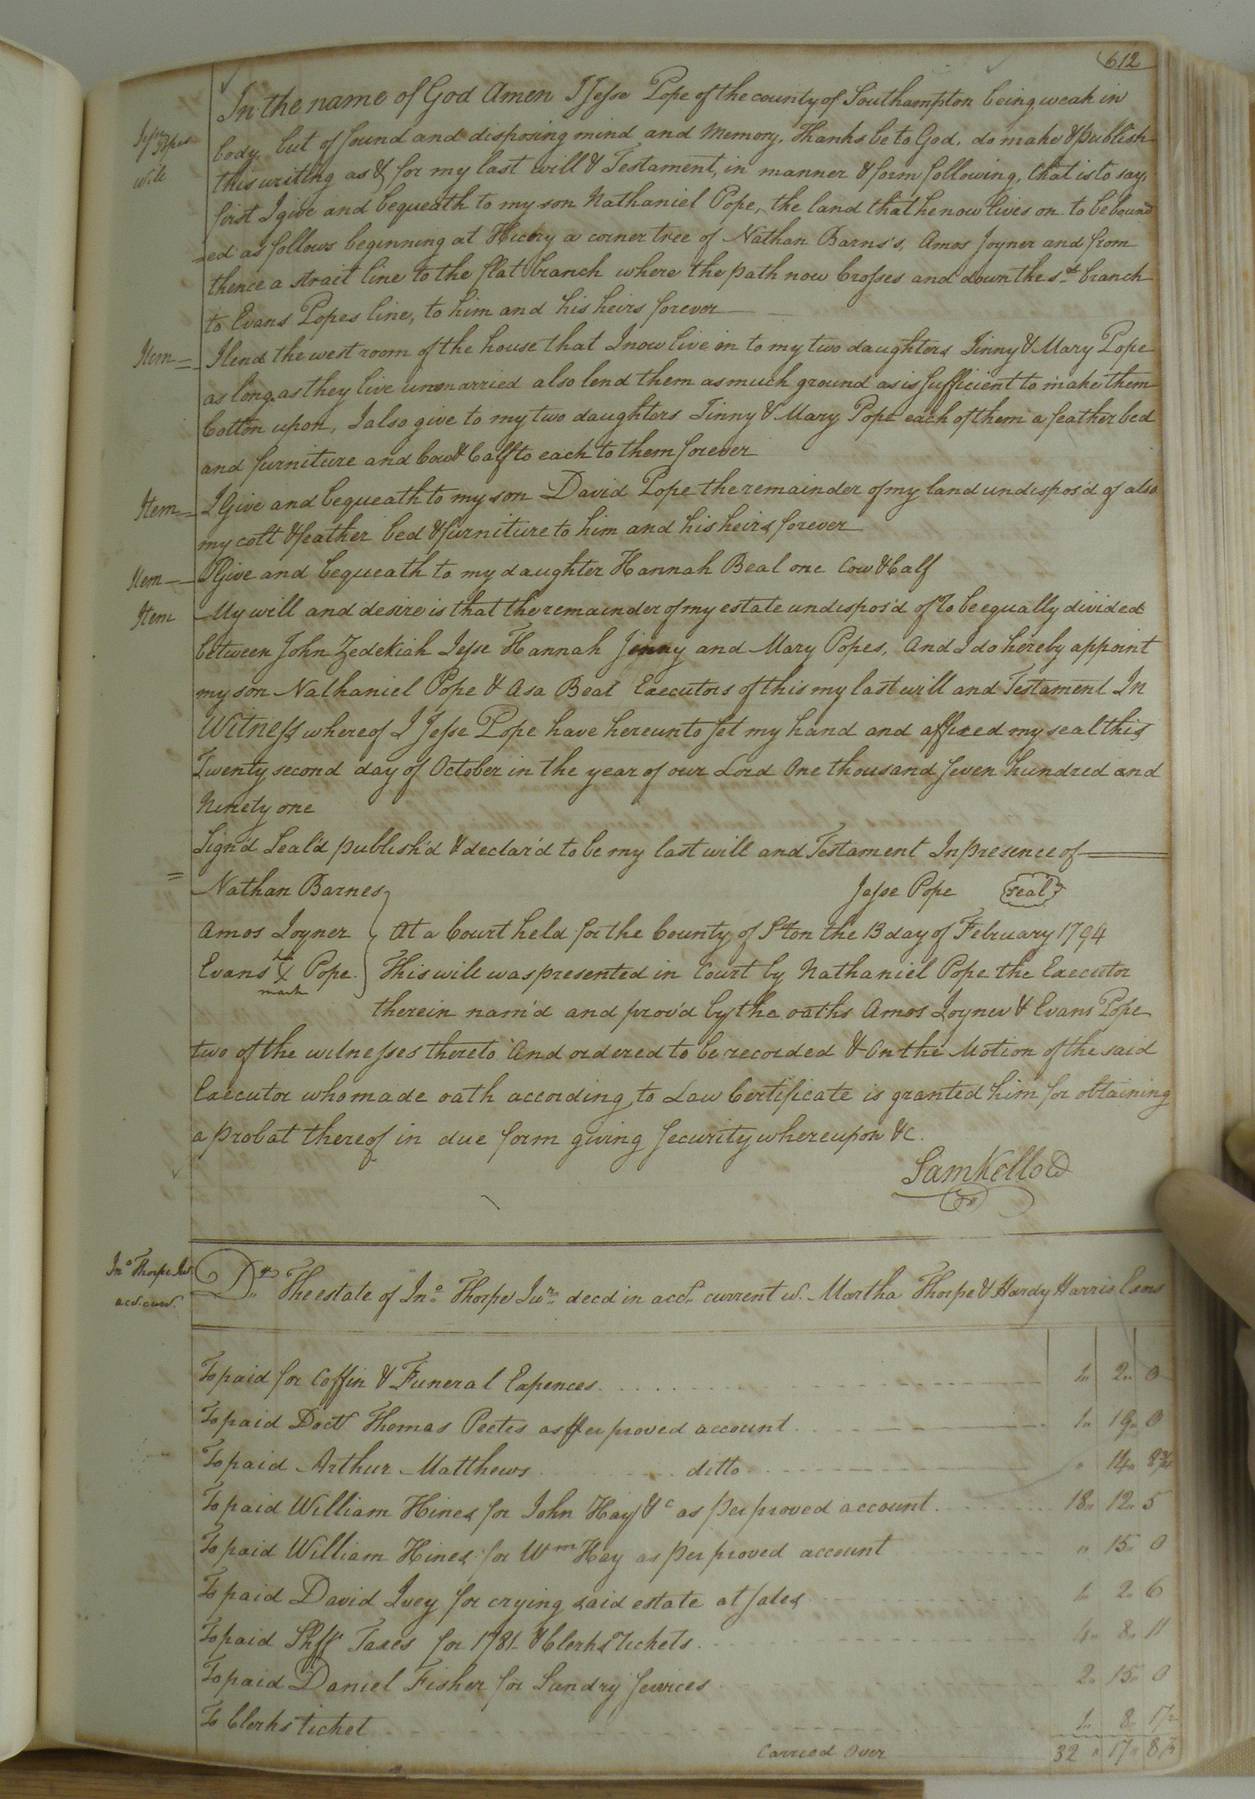 612
Jesse Popes
will
In the name of God Amen I Jesse Pope of the county of Southampton being weak in
body, but of sound and disposing mind and Memory, thanks be to God, do make & publish
this writing as & for my last will & Testament, in manner & form following, that is to say,
first I give and bequeath to my son Nathaniel Pope, the land that he now lives on to be bound
=ed as follows beginning at Hicory a corner tree of Nathan Barns's, Amos Joyner and from
thence a strait line to the flat branch where the path now Crosses and down the sd. branch
to Evans Popes line, to him and his heirs forever
Item= I lend the west room of the house that I now live in to my two daughters Jinny & Mary Pope
as long as they live unmarried also lend them as much ground as is sufficient to make them
Cotton upon, I also give to my two daughters Jinny & Mary Pope each of them a feather bed
and furniture and Cow & Calf to each to them forever
Item= I Give and bequeath to my son David Pope the remainder of my land undispos'd of also
my colt & feather bed & furniture to him and his heirs forever
Item= I Give and bequeath to my daughter Hannah Beal one Cow & Calf
Item My will and desire is that the remainder of my estate undispos'd of to be equally divided
between John Zedekiah Jesse Hannah Jinny and Mary Popes, And I do hereby appoint
my son Nathaniel Pope & Asa Beal Executors of this my last will and Testament In
Witness whereof I Jesse Pope have hereunto set my hand and affixed my seal this
Twenty second day of October in the year of our Lord One thousand seven hundred and
Ninety one
Sign'd Seal'd publish'd & declar'd to be my last will and Testament In presence of
= Nathan Barnes Jesse Pope seal
Amos Joyner At a Court held for the County of Ston the 13 day of February 1794
Evans X Pope This will was presented in Court by Nathaniel Pope the Executor
mark
therein nam'd and prov'd by the oaths Amos Joyner & Evans Pope
two of the witnesses thereto And ordered to be recorded & On the Motion of the said
Executor who made oath according to Law Certificate is granted him for obtaining
a Probat thereof in due form giving security whereupon &c.
Sam Kello
Jno. Thorpe Jur.
acct. curr.
Dr. The estate of Jno. Thorpe Junr. decd in acct. current w. Martha Thorpe & Hardy Harris Exors
To paid for Coffin & Funeral Expences 1 " 2 " 0
To paid Doctr Thomas Peete as per proved account 1 " 19 " 0
To paid Arthur Matthews ditto " 14 " 8¾
To paid William Hines for John Hay &c as per proved account 18 " 12 " 5
To paid William Hines for Wm Hay as per proved account " 15 " 0
To paid David Ivey for crying said estate at sales 1 " 2 " 6
To paid Shff Taxes for 1781 & Clerks Tickets 4 " 8 " 11
To paid Daniel Fisher for Sundry services 2 " 15 " 0
To Clerks ticket 1 " 8
Carried Over 32 " 17 " 8